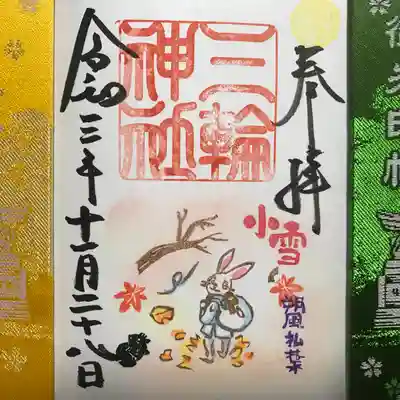 奉拝
三輪
神社
小雪
朔風払葉
令和三年十一月二十八日
御朱印帳